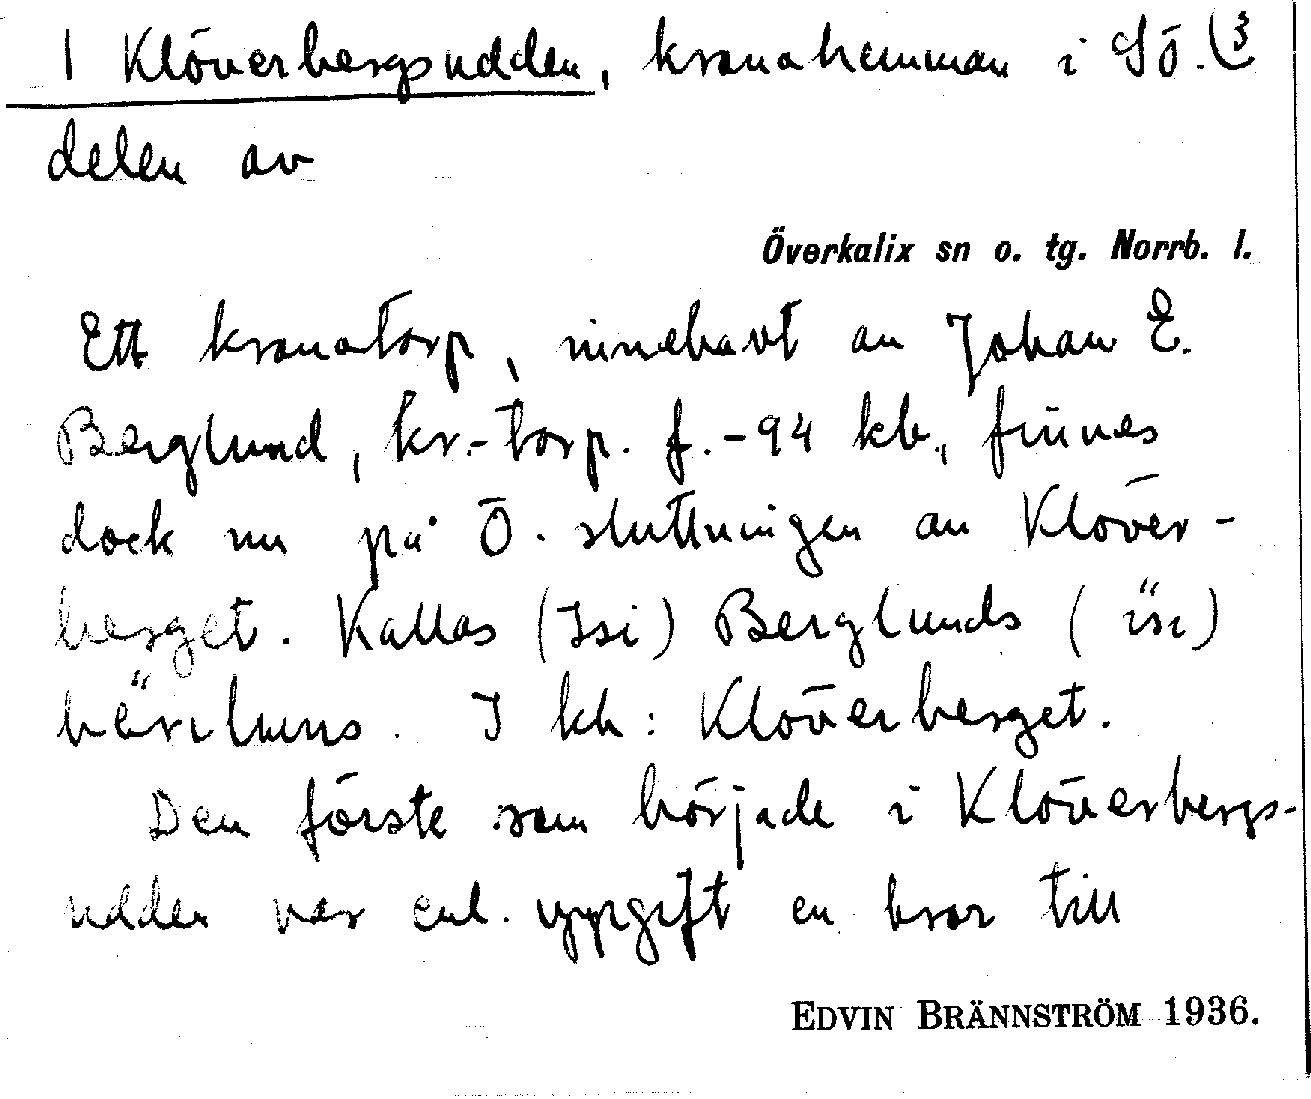 1 Klöverbergsudden, kronohemman i Sö. (3
delen av
Överkalix sn o. tg. Norrb. l.
Ett kronotorp, innehavt av Johan E.
Berglund, kr.-torp. f. -94 kb., finnes
dock nu på Ö. sluttningen av Klöver-
berget. Kallas (Isi) Berglunds (
I kb: Klöverberget.
Den förste som började i Klöverbergs-
udden var enl. uppgift en bror till
EDVIN BRÄNNSTRÖM 1936.